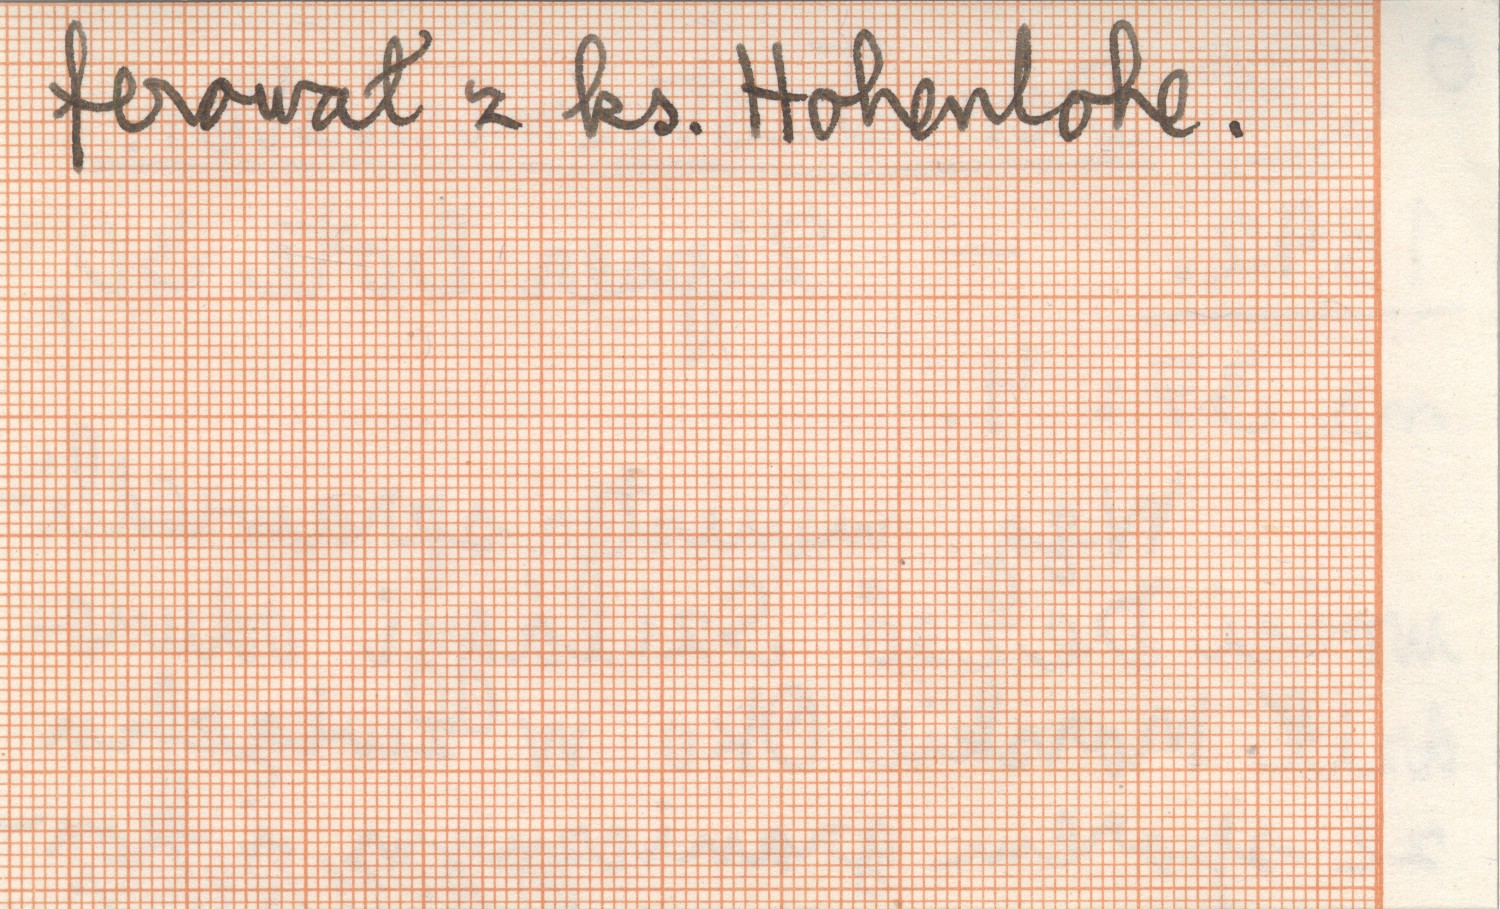 ferował z ks. Hohenlohe.